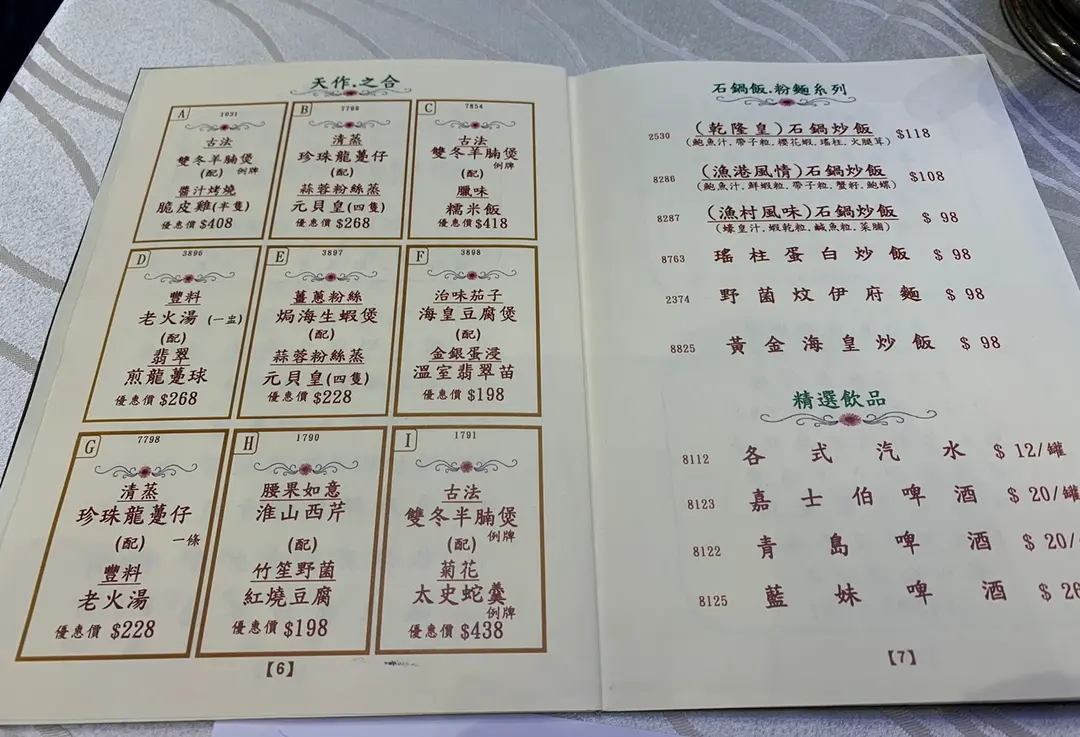 天作.之合
A
1031
古法
雙冬羊腩煲
(配) 例牌
醬汁烤燒
脆皮雞(半隻)
優惠價 $408
B
7799
清蒸
珍珠龍躉仔
(配)
蒜蓉粉絲蒸
元貝皇(四隻)
優惠價 $268
C
7854
古法
雙冬羊腩煲
(配) 例牌
臘味
糯米飯
優惠價 $418
D
3896
豐料
老火湯 (一盅)
(配)
翡翠
煎龍躉球
優惠價 $268
E
3897
薑蔥粉絲
焗海生蝦煲
(配)
蒜蓉粉絲蒸
元貝皇(四隻)
優惠價 $228
F
3898
治味茄子
海皇豆腐煲
(配)
金銀蛋浸
溫室翡翠苗
優惠價 $198
G
7798
清蒸
珍珠龍躉仔
(配) 一條
豐料
老火湯
優惠價 $228
H
1790
腰果如意
淮山西芹
(配)
竹笙野菌
紅燒豆腐
優惠價 $198
I
1791
古法
雙冬半腩煲
(配) 例牌
菊花
太史蛇羹
例牌
優惠價 $438
【6】
石鍋飯.粉麵系列
2530 (乾隆皇)石鍋炒飯 $118
(鮑魚汁.帶子粒.櫻花蝦.瑤柱.火腿茸)
8286 (漁港風情)石鍋炒飯 $108
(鮑魚汁.鮮蝦粒.帶子粒.蟹籽.鮑螺)
8287 (漁村風味)石鍋炒飯 $98
(蠔皇汁.蝦乾粒.鹹魚粒.菜脯)
8763 瑤柱蛋白炒飯 $98
2374 野菌炆伊府麵 $98
8825 黃金海皇炒飯 $98
精選飲品
8112 各式汽水 $12/罐
8123 嘉士伯啤酒 $20/罐
8122 青島啤酒 $20/
8125 藍妹啤酒 $26
【7】